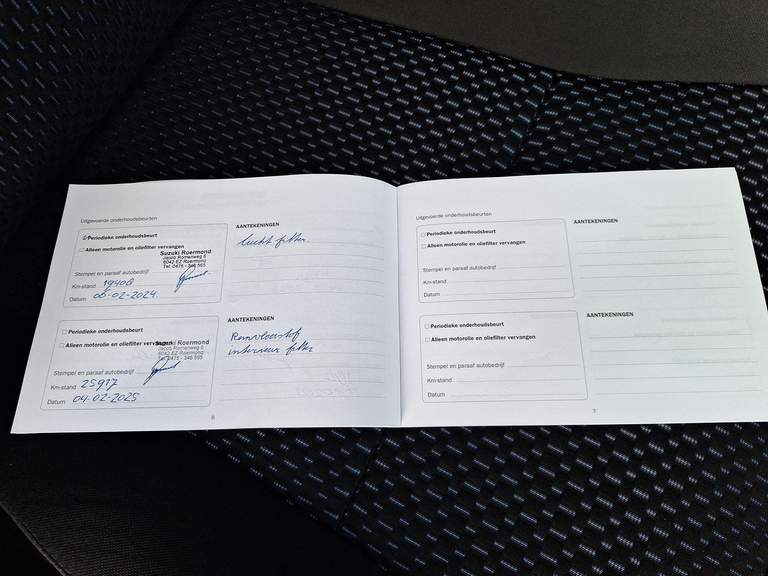 Uitgevoerde onderhoudsbeurten
Periodieke onderhoudsbeurt
Alleen motorolie en oliefilter vervangen
Suzuki Roermond
Jacob Romenweg 6
6042 EZ Roermond
Tel: 0475 - 346 565
Stempel en paraaf autobedrijf
Km-stand 19408
Datum 06-02-2024.
AANTEKENINGEN
lucht filter.
Periodieke onderhoudsbeurt
Alleen motorolie en oliefilter vervangen
Suzuki Roermond
Jacob Romenweg 6
6042 EZ Roermond
Tel: 0475 - 346 565
Stempel en paraaf autobedrijf
Km-stand 25917
Datum 04-02-2025
AANTEKENINGEN
Remvloeistof
interieur filter
6
Uitgevoerde onderhoudsbeurten
Periodieke onderhoudsbeurt
Alleen motorolie en oliefilter vervangen
Stempel en paraaf autobedrijf
Km-stand
Datum
AANTEKENINGEN
Periodieke onderhoudsbeurt
Alleen motorolie en oliefilter vervangen
Stempel en paraaf autobedrijf
Km-stand
Datum
AANTEKENINGEN
7